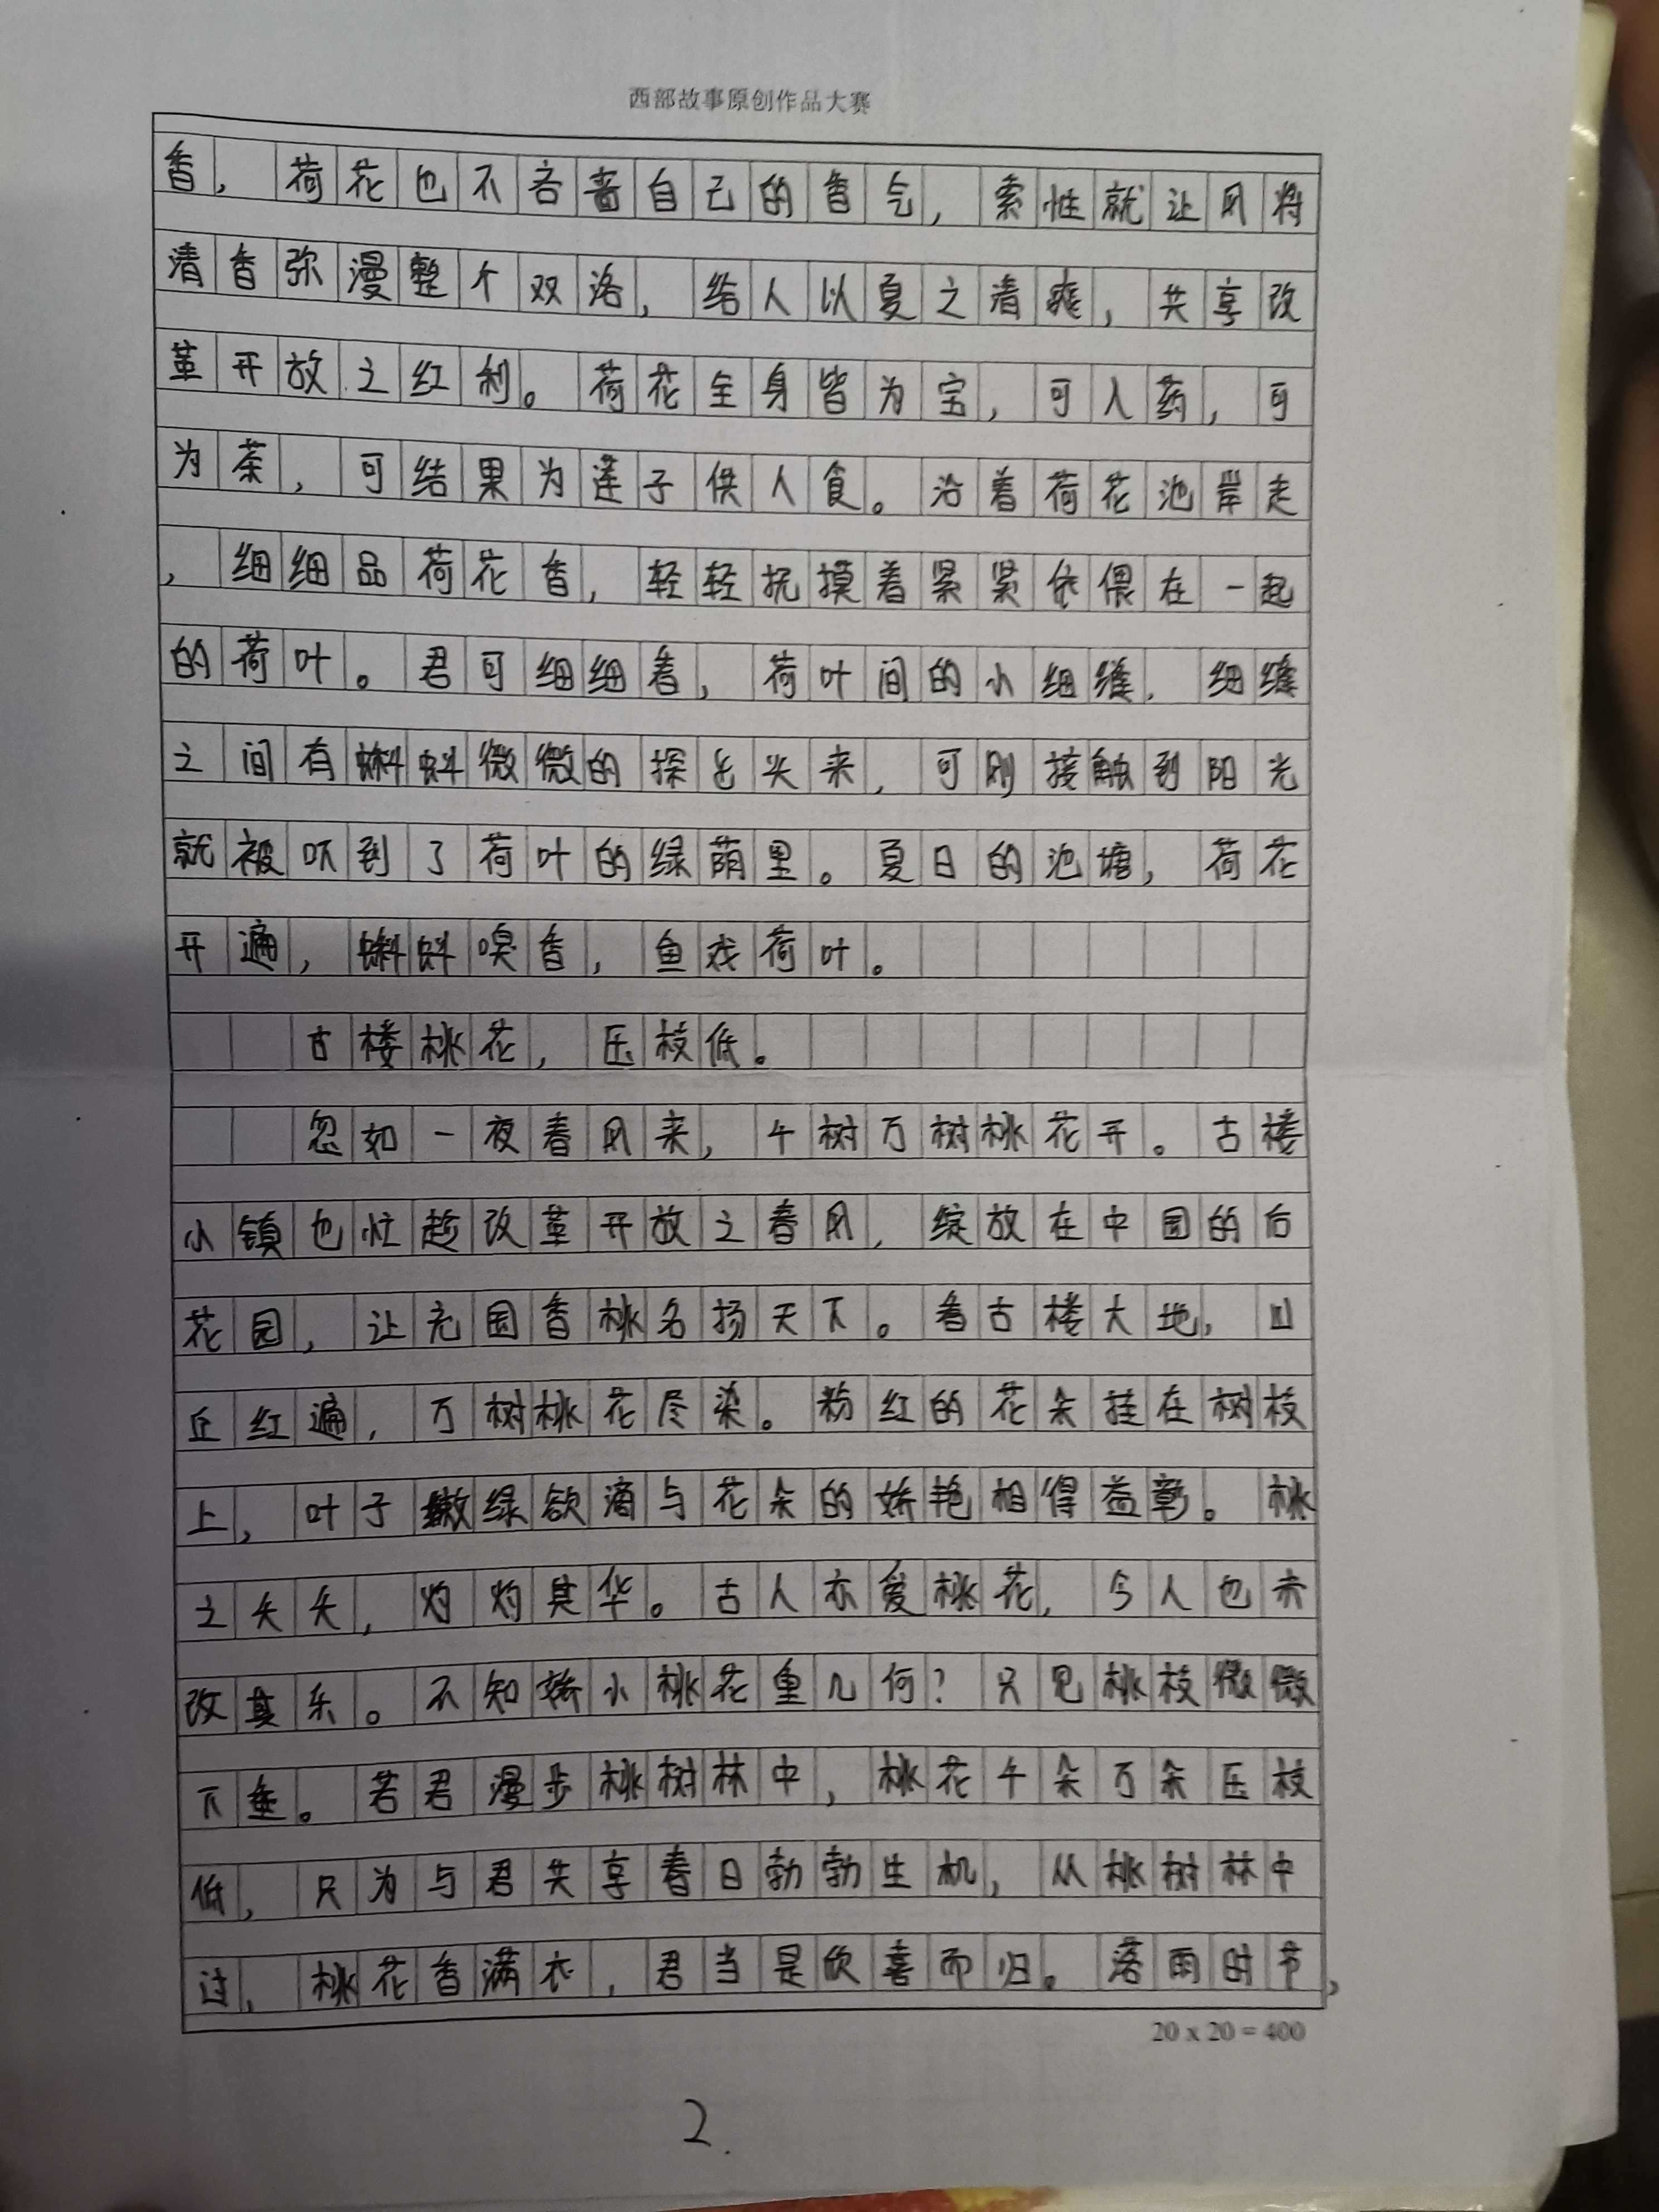 西部故事原创作品大赛
香，荷花也不吝啬自己的香气，索性就让风将
清香弥漫整个双洛，给人以夏之清爽，共享改
革开放之红利。荷花全身皆为宝，可入药，可
为茶，可结果为莲子供人食。沿着荷花池岸走
，细细品荷花香，轻轻抚摸着紧紧依偎在一起
的荷叶。君可细细看，荷叶间的小细缝，细缝
之间有蝌蚪微微的探出头来，可刚接触到阳光
就被吓到了荷叶的绿荫里。夏日的池塘，荷花
开遍，蝌蚪嗅香，鱼戏荷叶。
古楼桃花，压枝低。
忽如一夜春风来，千树万树桃花开。古楼
小镇也忙趁改革开放之春风，绽放在中国的后
花园，让充国香桃名扬天下。看古楼大地，山
丘红遍，万树桃花尽染。粉红的花朵挂在树枝
上，叶子嫩绿欲滴与花朵的娇艳相得益彰。桃
之夭夭，灼灼其华。古人亦爱桃花，今人也亦
改其乐。不知娇小桃花重几何？只见桃枝微微
下垂。若君漫步桃树林中，桃花千朵万朵压枝
低，只为与君共享春日勃勃生机，从桃树林中
过，桃花香满衣，君当是欣喜而归。落雨时节，
20 x 20 = 400
2.